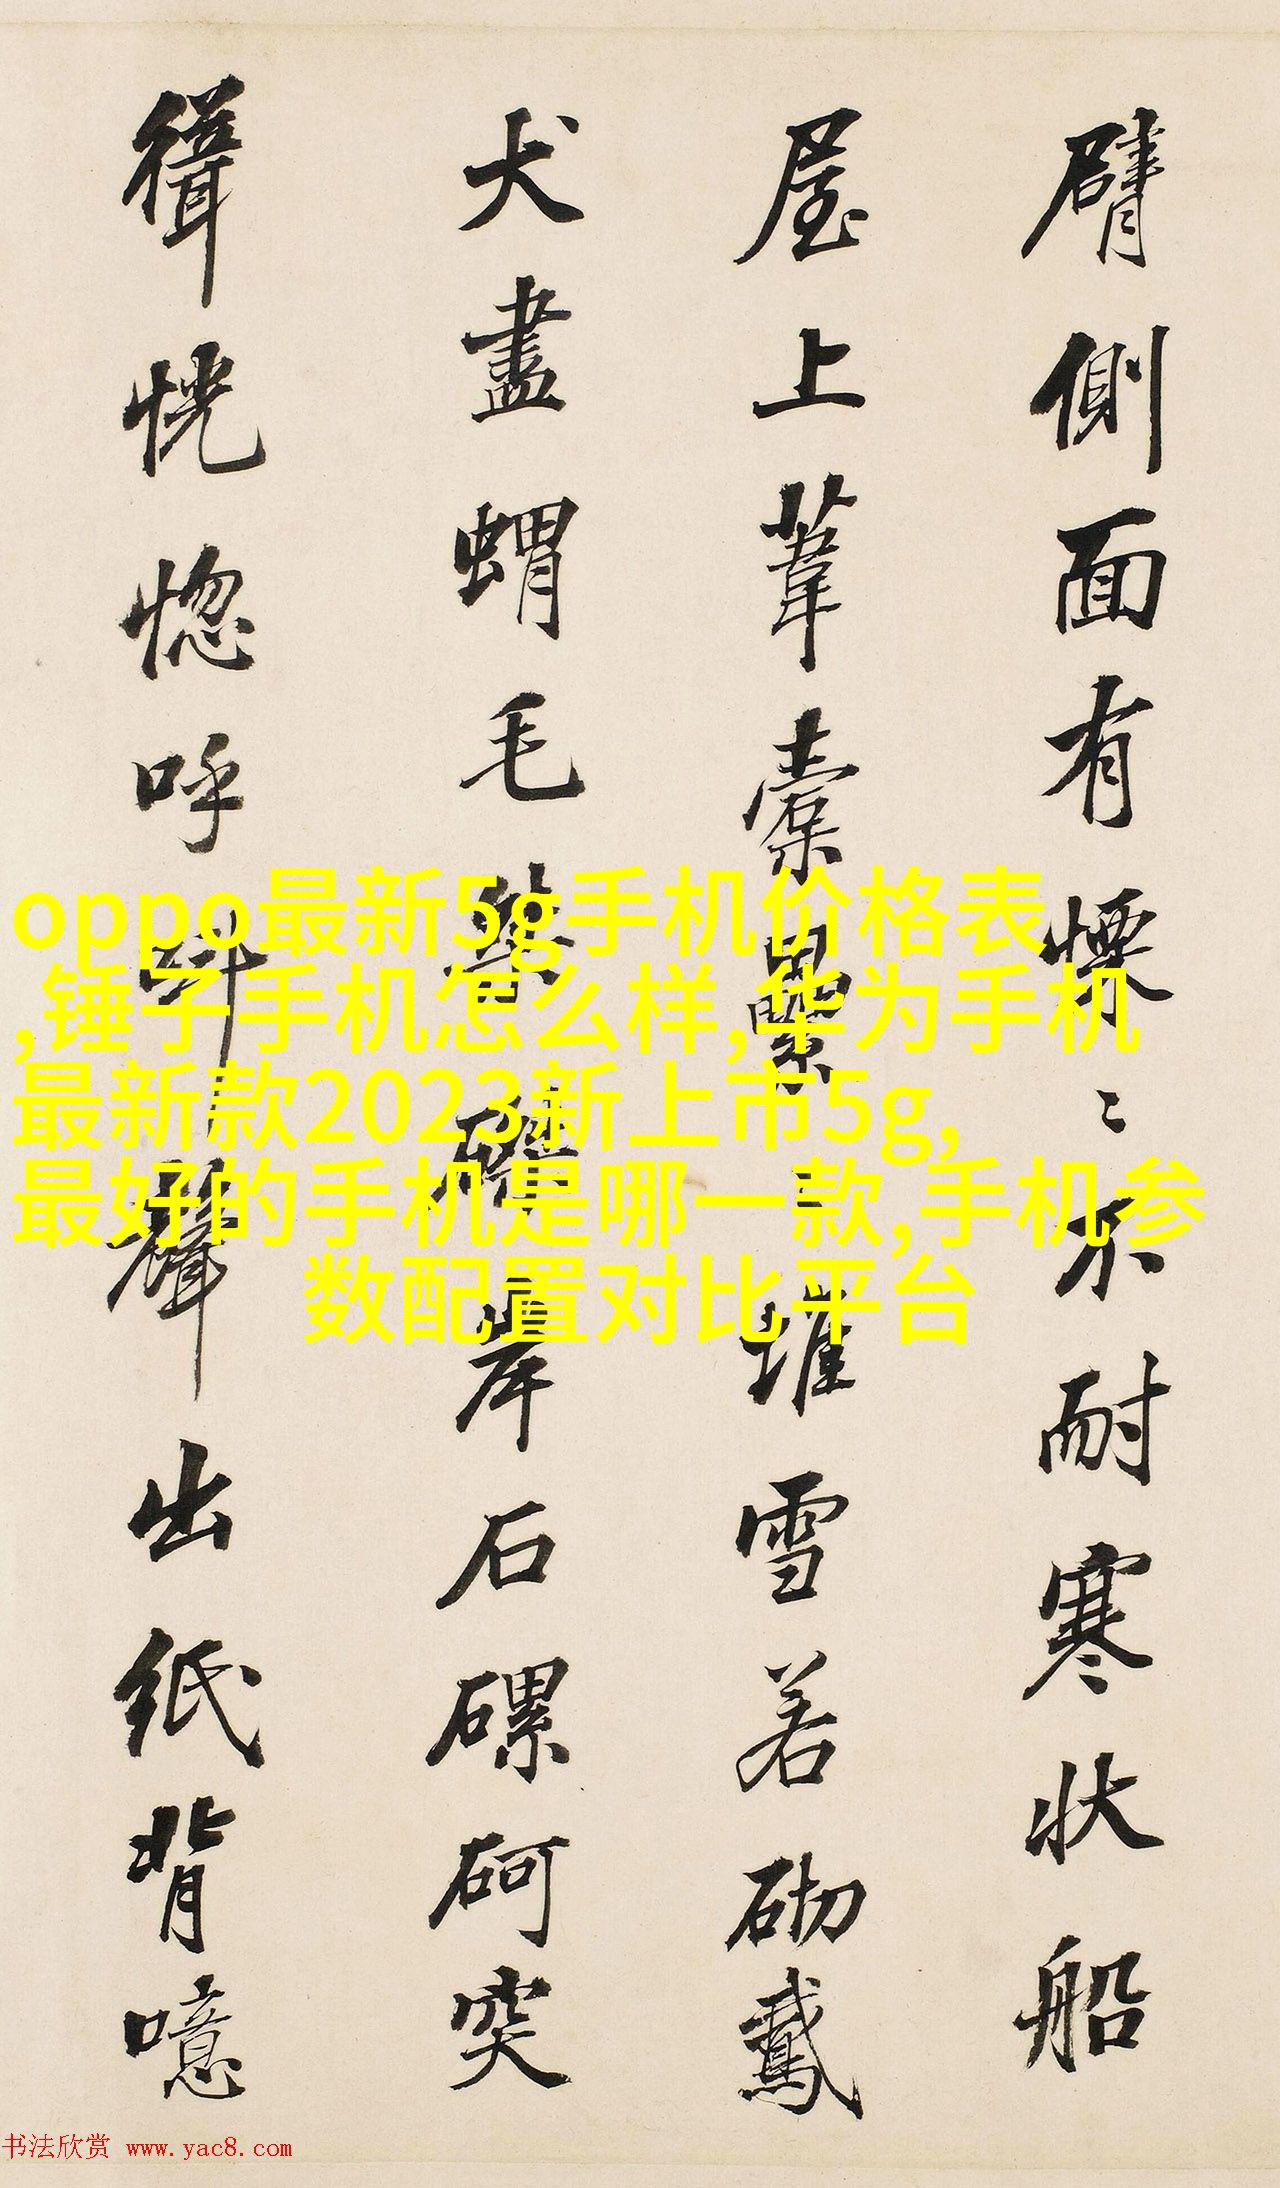 臂側面有慄〻不耐寒状船
屋上葦橐纍〻堆雪若砌鸃
犬盡蝟毛磔岸石磥砢突
緝恍惚呼叫聲出紙背噫
oppo最新5g手机价格表
,锤子手机怎么样,华为手机
最新款2023新上市5g,
最好的手机是哪一款,手机参
数配置对比平台
书法欣赏 www.yac8.com